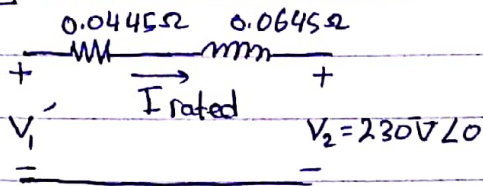 0.0445Ω 0.0645Ω
+ I rated +
V₁′ V₂ = 230V∠0
− −